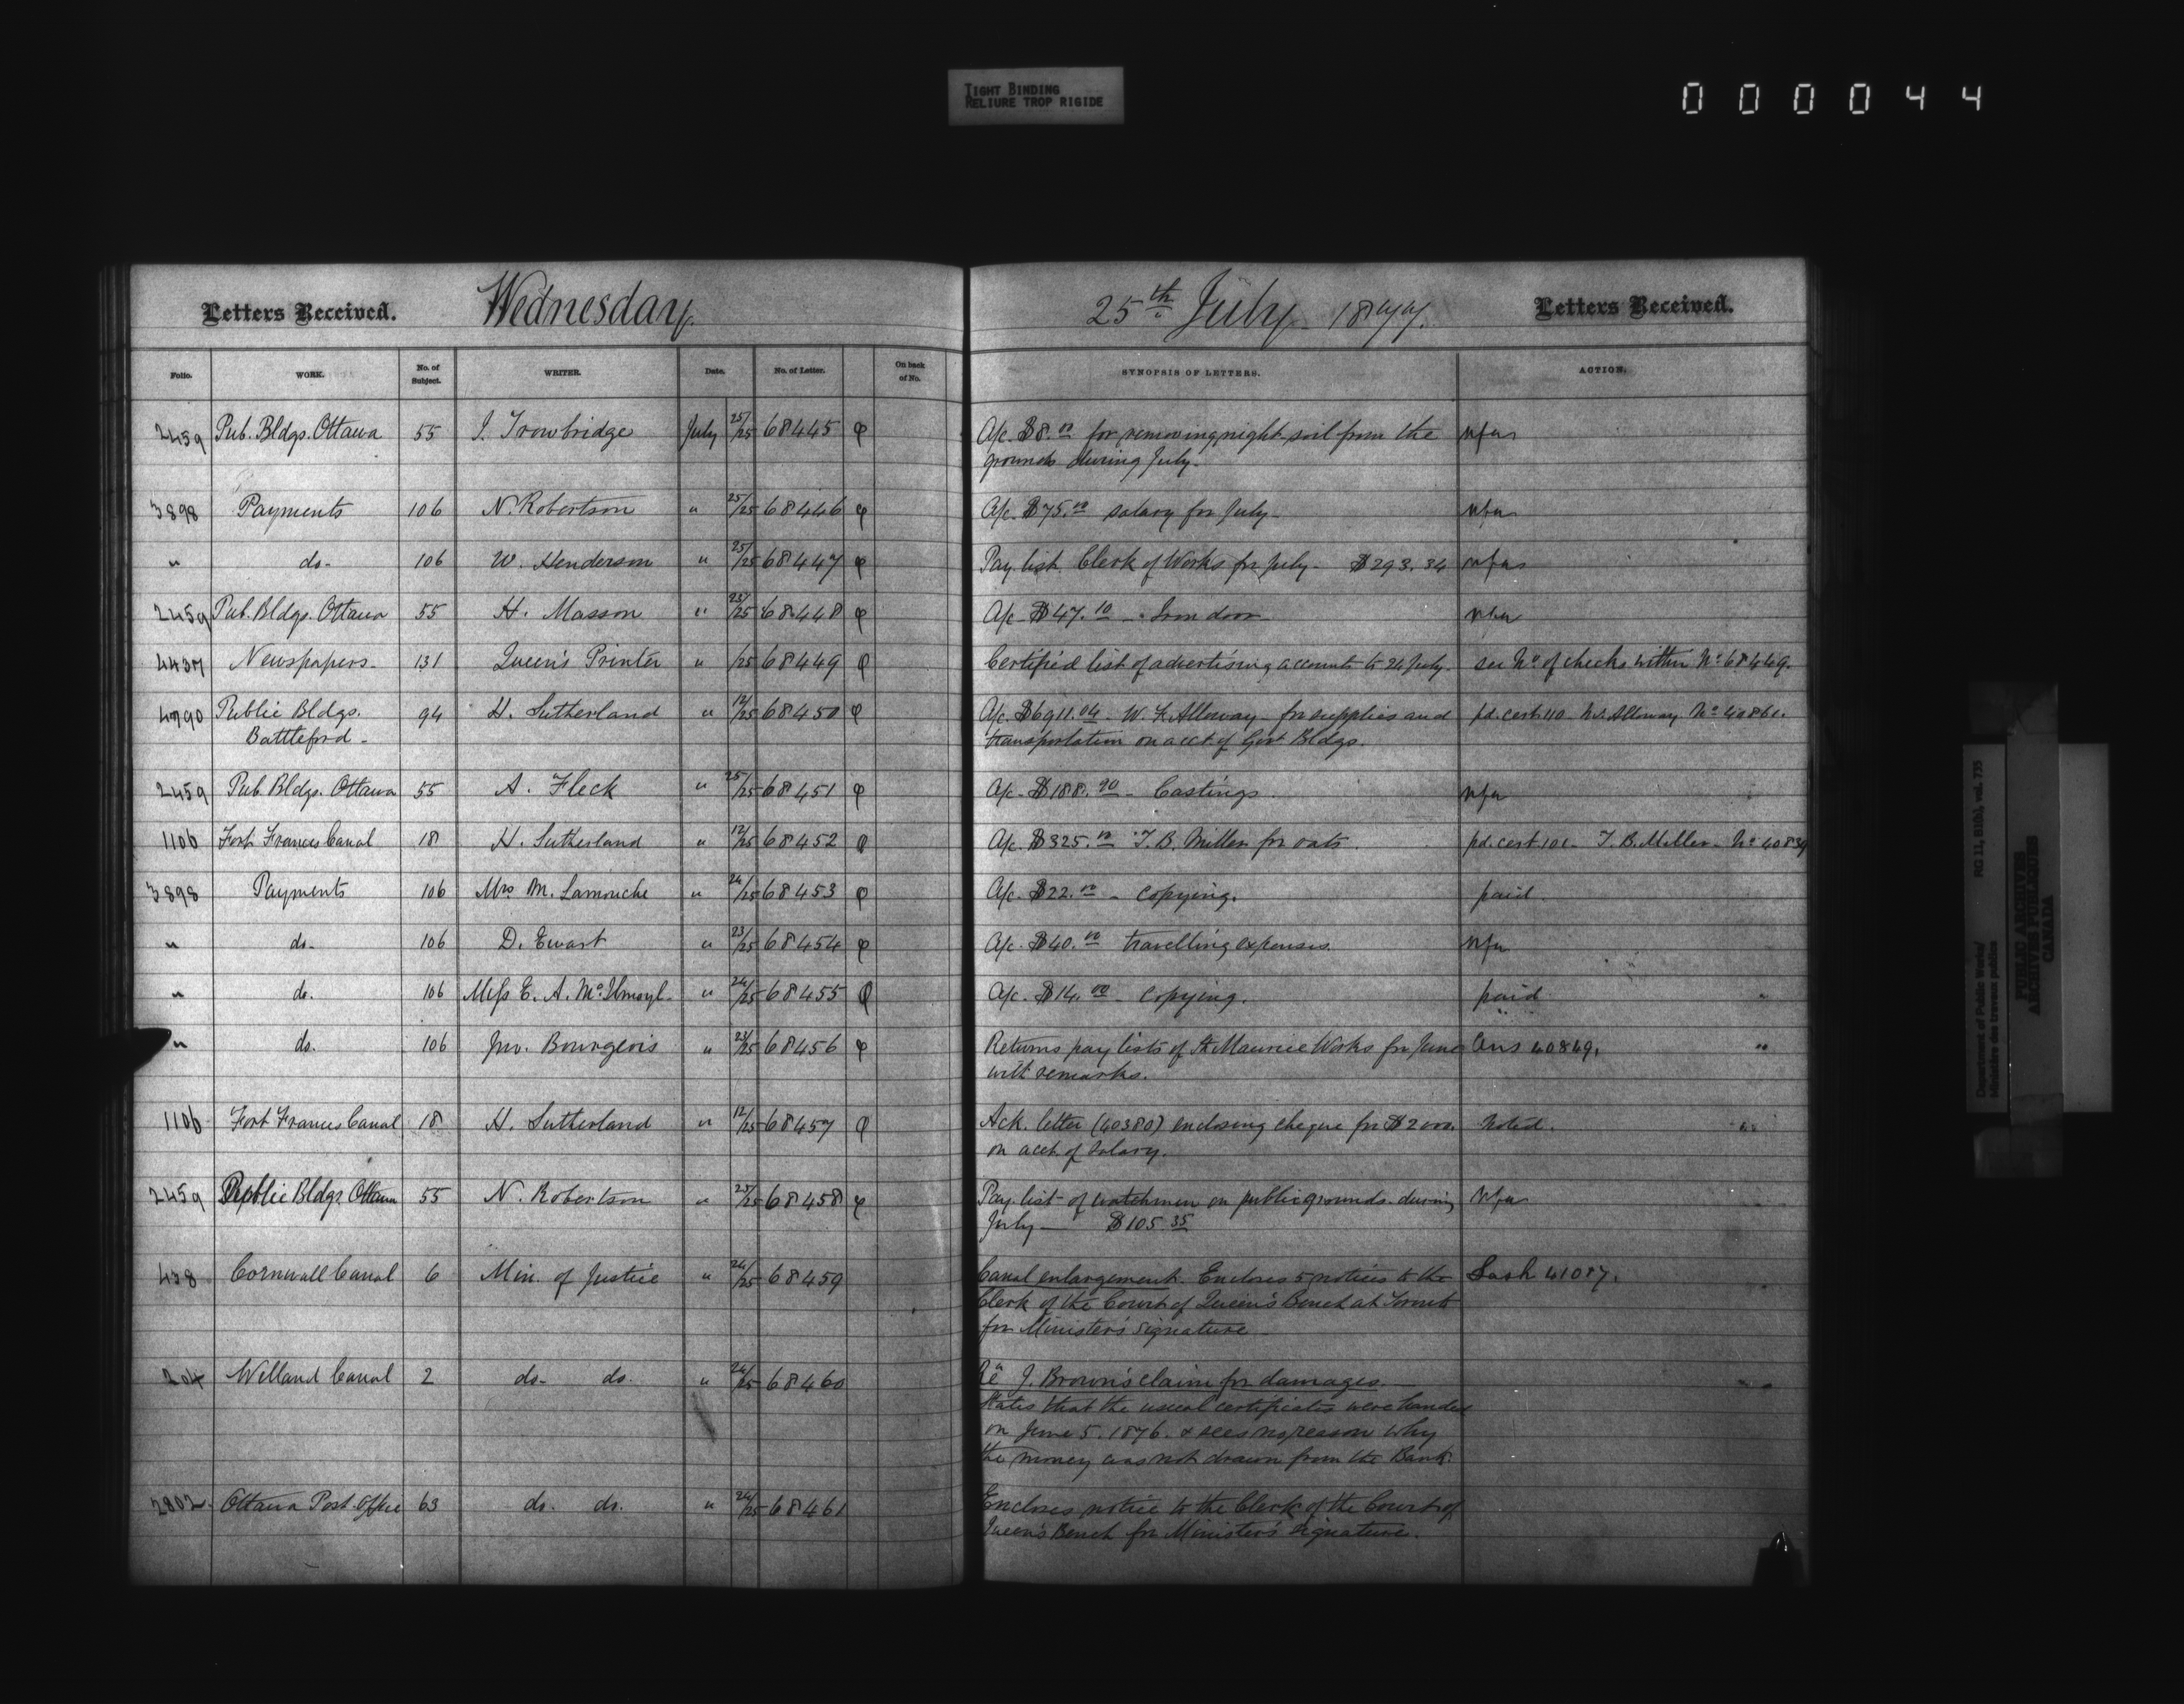 TIGHT BINDING
RELIURE TROP RIGIDE
000044
Letters Received. Wednesday. 25th July 1877. Letters Received.
Folio. WORK. No. of Subject. WRITER. Date. No. of Letter. On back of No. SYNOPSIS OF LETTERS. ACTION.
2459 Pub. Bldgs. Ottawa 55 J. Trowbridge July 25/25 68445 A/c. $8.00 for removing night soil from the
grounds during July.
3898 Payments 106 N. Robertson " 25/25 68446 A/c. $75.00 salary for July
" do. 106 W. Henderson " 25/25 68447 Pay list Clerk of Works for July - $293.34
2459 Pub. Bldgs. Ottawa 55 H. Masson " 23/25 68448 A/c - $47.10 - Iron door
4437 Newspapers 131 Queen's Printer " /25 68449 Certified list of advertising accounts to 24 July. see No of checks within No 68449.
4790 Public Bldgs. 94 H. Sutherland " 12/25 68450 A/c. $6911.04 - W. F. Alloway - for supplies and pd. cert. 110 Alloway No 40861.
Battleford - transportation on acct. of Govt Bldgs.
2459 Pub. Bldgs. Ottawa 55 A. Fleck " 25/25 68451 A/c - $188.90 - Castings.
1106 Fort Frances Canal 18 H. Sutherland " 12/25 68452 A/c. $325.00 T. B. Miller for oats. pd. cert 101 - T. B. Miller - No 40839
3898 Payments 106 Mrs. M. Lamouche " 24/25 68453 A/c. $22.00 - copying. paid.
" do. 106 D. Ewart " 23/25 68454 A/c. $40.00 travelling expenses.
" do. 106 Miss E. A. " 24/25 68455 A/c. $14.00 - copying. paid.
" do. 106 Jno. Bourgeois " 23/25 68456 Returns pay lists of St Maurice Works for June Ans 40849.
with remarks.
1106 Fort Frances Canal 18 H. Sutherland " 12/25 68457 Ack. letter (40380) enclosing cheque for $2000. Noted.
on acct. of salary.
2459 Public Bldgs. Ottawa 55 N. Robertson " 25/25 68458 Pay list of watchmen on public grounds during
July - $105.35
438 Cornwall Canal 6 Min. of Justice " 24/25 68459 Canal enlargement. Encloses 5 notices to the 41087.
Clerk of the Court of Queen's Bench at Toronto
for Minister's signature
204 Welland Canal 2 do. do. " 24/25 68460 Re J. Brown's claim for damages.
States that the usual certificates were handed
on June 5. 1876. & sees no reason why
the money was not drawn from the Bank.
2802 Ottawa Post Office 63 do. do. " 24/25 68461 Encloses notice to the Clerk of the Court of
Queen's Bench for Minister's signature.
Department of Public Works/ RG 11, B1(b), vol. 735
Ministère des travaux publics
PUBLIC ARCHIVES
ARCHIVES PUBLIQUES
CANADA